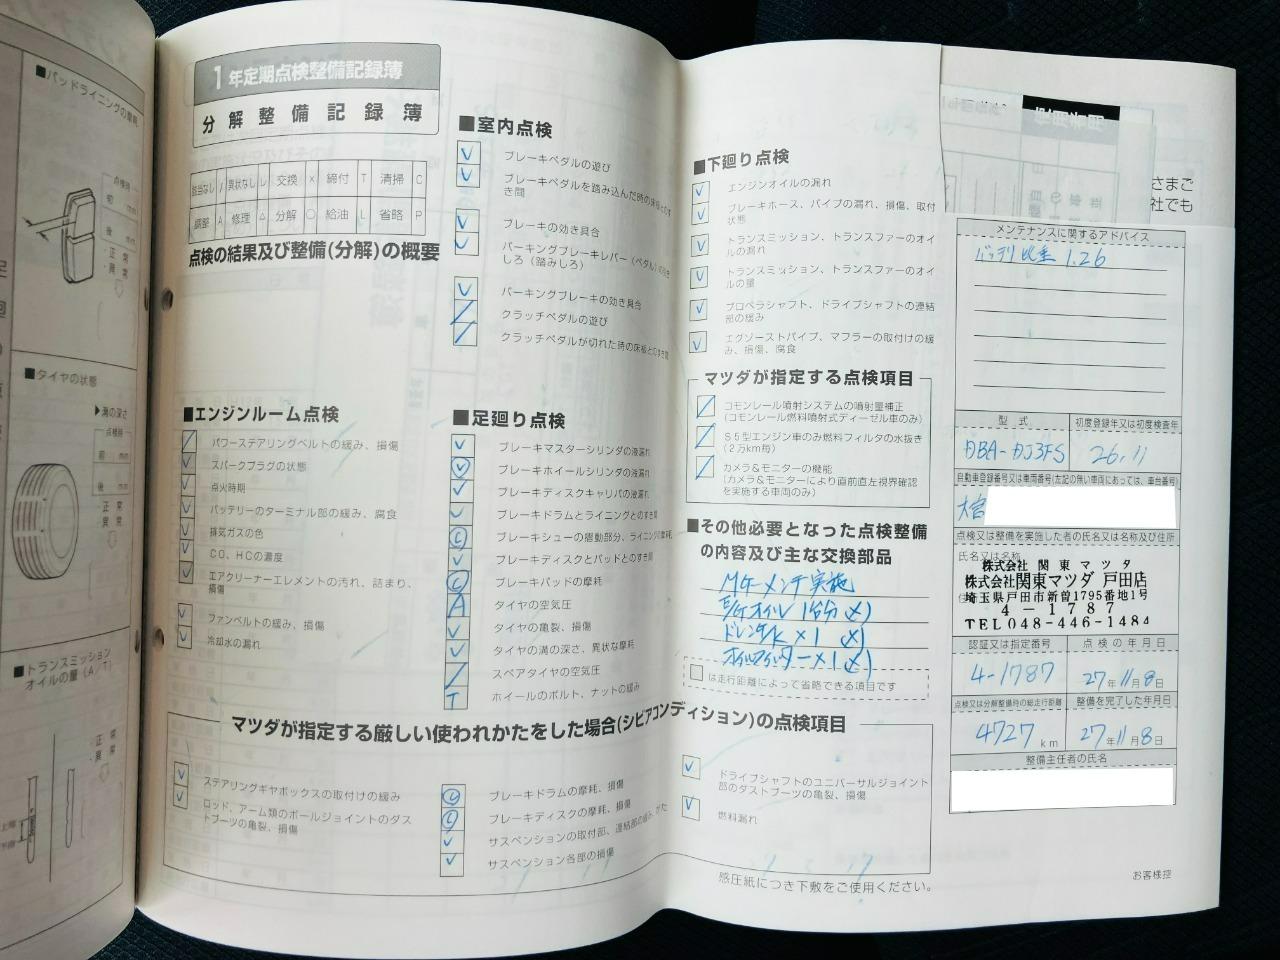 ■パッドライニングの摩耗
点検時
前 mm
後 mm
・正常
・異常
■タイヤの状態
▶溝の深さ
点検時
前 mm
後 mm
・正常
・異常
■トランスミッション
オイルの量(A/T)
・正常
・異常
上限
下限
1年定期点検整備記録簿
分解整備記録簿
該当なし / 異常なし レ 交換 × 締付 T 清掃 C
調整 A 修理 △ 分解 ○ 給油 L 省略 P
点検の結果及び整備(分解)の概要
■エンジンルーム点検
パワーステアリングベルトの緩み、損傷
スパークプラグの状態
点火時期
バッテリーのターミナル部の緩み、腐食
排気ガスの色
CO、HCの濃度
エアクリーナーエレメントの汚れ、詰まり、
損傷
ファンベルトの緩み、損傷
冷却水の漏れ
■室内点検
ブレーキペダルの遊び
ブレーキペダルを踏み込んだ時の床板とのす
き間
ブレーキの効き具合
パーキングブレーキレバー(ペダル)の引き
しろ(踏みしろ)
パーキングブレーキの効き具合
クラッチペダルの遊び
クラッチペダルが切れた時の床板とのすき間
■足廻り点検
ブレーキマスターシリンダの液漏れ
ブレーキホイールシリンダの液漏れ
ブレーキディスクキャリパの液漏れ
ブレーキドラムとライニングとのすき間
ブレーキシューの摺動部分、ライニングの摩耗
ブレーキディスクとパッドとのすき間
ブレーキパッドの摩耗
A タイヤの空気圧
タイヤの亀裂、損傷
タイヤの溝の深さ、異状な摩耗
スペアタイヤの空気圧
T ホイールのボルト、ナットの緩み
■下廻り点検
エンジンオイルの漏れ
ブレーキホース、パイプの漏れ、損傷、取付
状態
トランスミッション、トランスファーのオイ
ルの漏れ
トランスミッション、トランスファーのオイ
ルの量
プロペラシャフト、ドライブシャフトの連結
部の緩み
エグゾーストパイプ、マフラーの取付けの緩
み、損傷、腐食
マツダが指定する点検項目
コモンレール噴射システムの噴射量補正
(コモンレール燃料噴射式ディーゼル車のみ)
S5型エンジン車のみ燃料フィルタの水抜き
(2万km毎)
カメラ&モニターの機能
(カメラ&モニターにより直前直左視界確認
を実施する車両のみ)
■その他必要となった点検整備
の内容及び主な交換部品
Mケーメンテ実施
ドレンP/K×1
オイルフィルター×1
は走行距離によって省略できる項目です
マツダが指定する厳しい使われかたをした場合(シビアコンディション)の点検項目
ステアリングギヤボックスの取付けの緩み
ロッド、アーム類のボールジョイントのダス
トブーツの亀裂、損傷
ブレーキドラムの摩耗、損傷
ブレーキディスクの摩耗、損傷
サスペンションの取付部、連結部の緩み、がた
サスペンション各部の損傷
ドライブシャフトのユニバーサルジョイント
部のダストブーツの亀裂、損傷
燃料漏れ
感圧紙につき下敷をご使用ください。
使用者用
さまご
社でも
メンテナンスに関するアドバイス
バッテリ比重 1.26
型式 初度登録年又は初度検査年
DBA-DJ3FS 26.11
自動車登録番号又は車両番号(左記の無い車両にあっては、車台番号)
大宮
点検又は整備を実施した者の氏名又は名称及び住所
氏名又は名称
株式会社 関東マツダ
株式会社関東マツダ 戸田店
埼玉県戸田市新曽1795番地1号
4-1787
TEL048-446-1484
認証又は指定番号 点検の年月日
4-1787 27年11月8日
点検又は分解整備時の総走行距離 整備を完了した年月日
4727 km 27年11月8日
整備主任者の氏名
お客様控